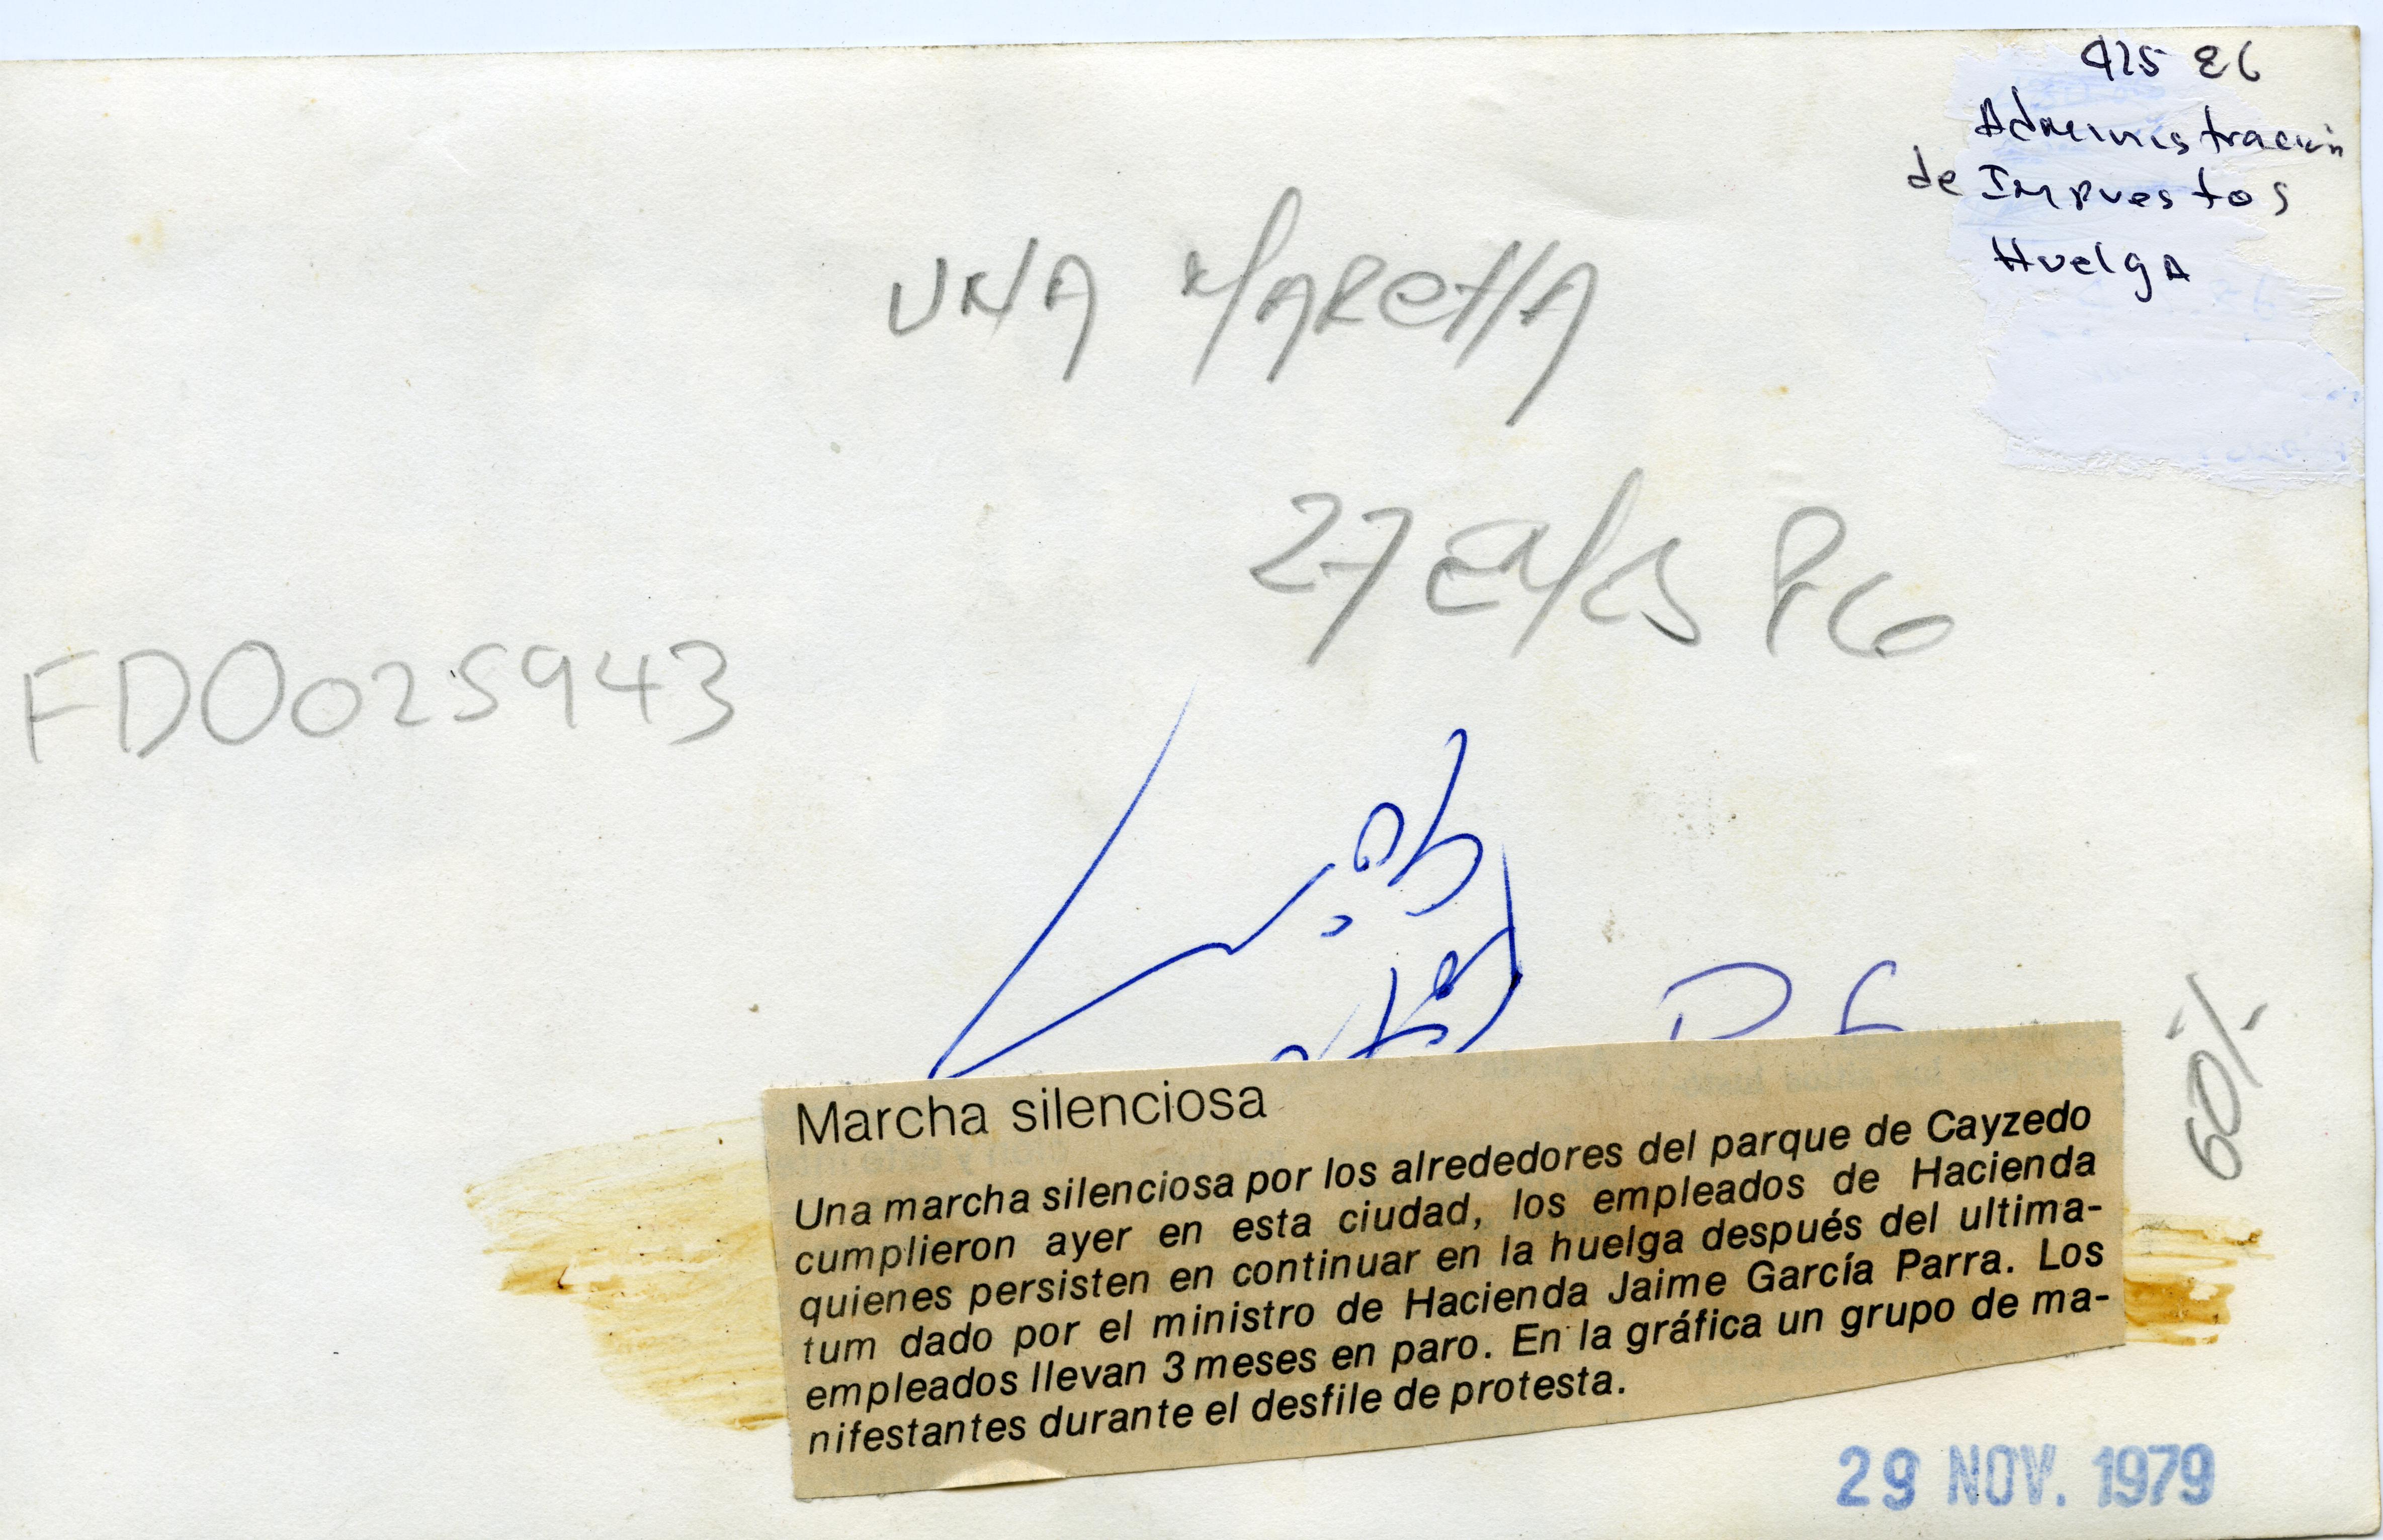 925 E6
Administración
de Impuestos
Huelga
UNA MARCHA
27 EMS P6
FD0025943
60%
Marcha silenciosa
Una marcha silenciosa por los alrededores del parque de Cayzedo
cumplieron ayer en esta ciudad, los empleados de Hacienda
quienes persisten en continuar en la huelga después del ultima-
tum dado por el ministro de Hacienda Jaime García Parra. Los
empleados llevan 3 meses en paro. En la gráfica un grupo de ma-
nifestantes durante el desfile de protesta.
29 NOV. 1979